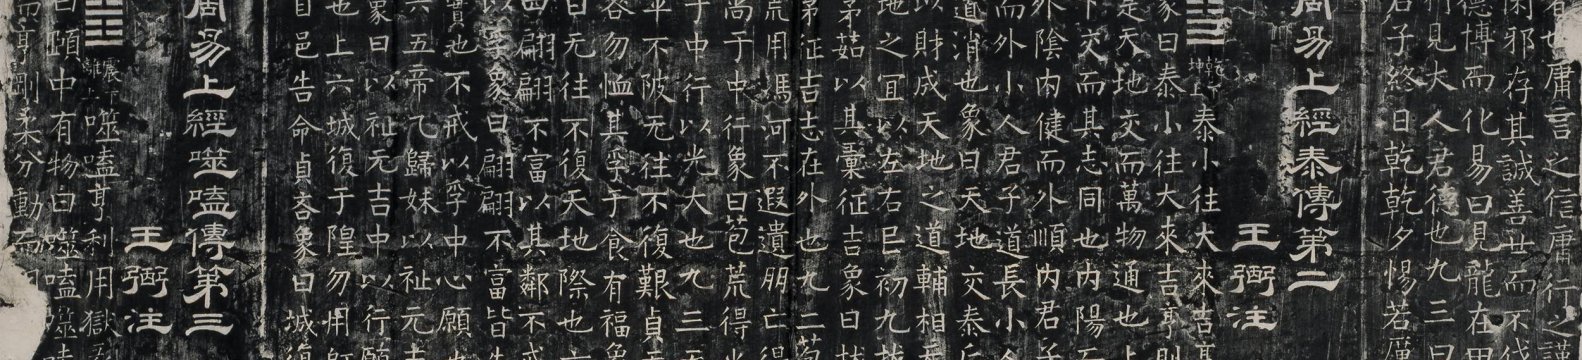 庸言之信庸行之謹
閑邪存其誠善世而不伐
德博而化易曰見龍在田
利見大人君德也九三曰
君子終日乾乾夕惕若厲
周易上經泰傳第二
王弼注
乾下坤上泰小往大來吉亨
彖曰泰小往大來吉亨則
是天地交而萬物通也上
下交而其志同也內陽而
外陰內健而外順內君子
而外小人君子道長小人
道消也象曰天地交泰后
以財成天地之道輔相天
地之宜以左右民初九拔
茅茹以其彙征吉象曰拔
茅征吉志在外也九二苞
荒用馮河不遐遺朋亡得
尚于中行象曰苞荒得尚
于中行以光大也九三无
平不陂无往不復艱貞无
咎勿恤其孚于食有福象
曰无往不復天地際也六
四翩翩不富以其鄰不戒
以孚象曰翩翩不富皆失
實也不戒以孚中心願也
六五帝乙歸妹以祉元吉
象曰以祉元吉中以行願
也上六城復于隍勿用師
自邑告命貞吝象曰城復
周易上經噬嗑傳第三
王弼注
震下離上噬嗑亨利用獄彖
曰頤中有物曰噬嗑噬嗑
而亨剛柔分動而明